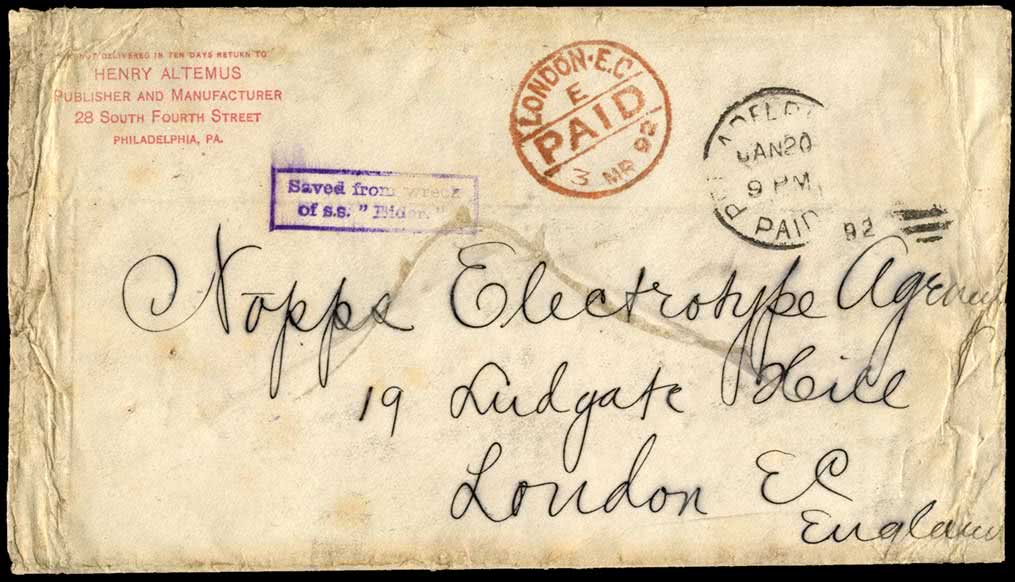 NOT DELIVERED IN TEN DAYS RETURN TO
HENRY ALTEMUS
PUBLISHER AND MANUFACTURER
28 SOUTH FOURTH STREET
PHILADELPHIA, PA.
LONDON·E.C
E
PAID
3 MR 92
JAN 20
9 PM
PAID
92
Saved from wreck
of s.s. "Eider."
Nopps Electrotype Agency
19 Ludgate Hill
London EC
England